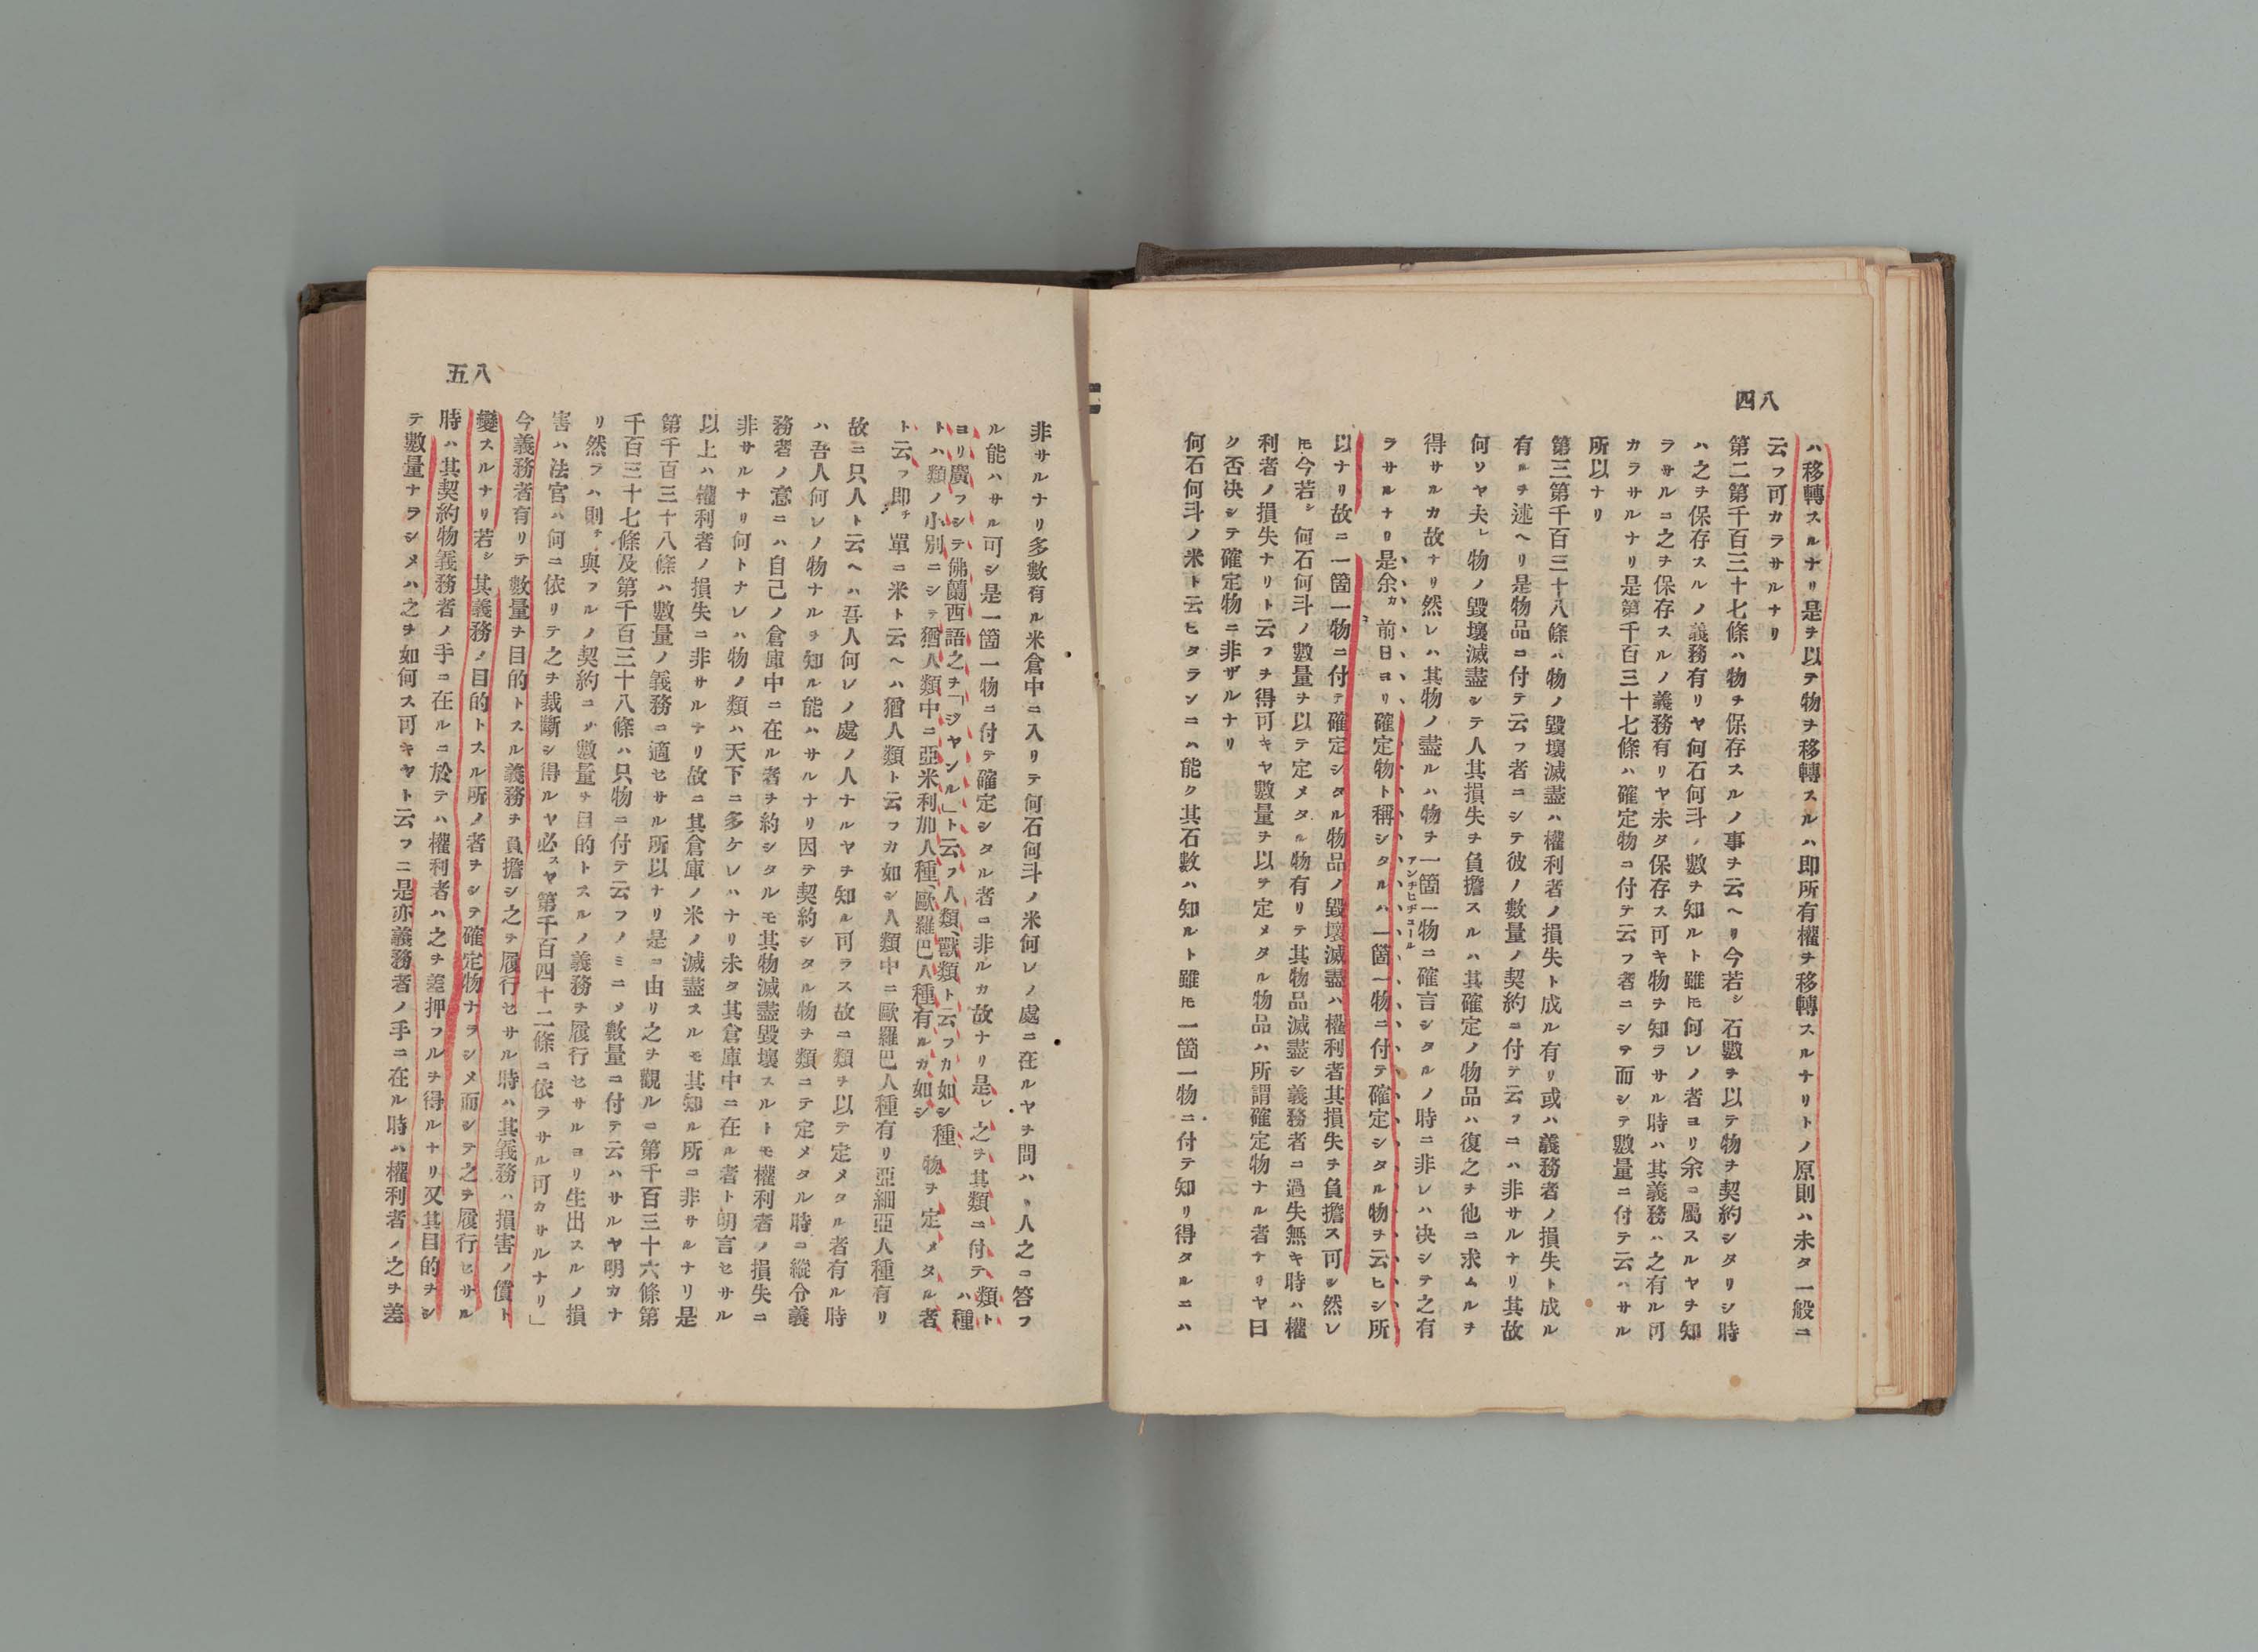 八四
ハ移轉スルナリ是ヲ以テ物ヲ移轉スルハ即所有權ヲ移轉スルナリトノ原則ハ未タ一般ニ
云フ可カラサルナリ
第二第千百三十七條ハ物ヲ保存スルノ事ヲ云ヘリ今若シ石數ヲ以テ物ヲ契約シタリシ時
ハ之ヲ保存スルノ義務有リヤ何石何斗ノ數ヲ知ルト雖𪜈何レノ者ヨリ余ニ屬スルヤヲ知
ラサルヿ之ヲ保存スルノ義務有リヤ未タ保存ス可キ物ヲ知ラサル時ハ其義務ハ之有ル可
カラサルナリ是第千百三十七條ハ確定物ニ付テ云フ者ニシテ而シテ數量ニ付テ云ハサル
所以ナリ
第三第千百三十八條ハ物ノ毀壞滅盡ハ權利者ノ損失ト成ル有リ或ハ義務者ノ損失ト成ル
有ルヲ述ヘリ是物品ニ付テ云フ者ニシテ彼ノ數量ノ契約ニ付テ云フニハ非サルナリ其故
何リヤ夫レ物ノ毀壞滅盡シテ人其損失ヲ負擔スルハ其確定ノ物品ハ復之ヲ他ニ求ムルヲ
得サルカ故ナリ然レハ其物ノ盡ルハ物ヲ一箇一物ニ確言シタルノ時ニ非レハ决シテ之有
アンチヒヂユール
ラサルナリ是余カ前日ヨリ確定物ト稱シタルハ一箇一物ニ付テ確定シタル物ヲ云ヒシ所
以ナリ故ニ一箇一物ニ付テ確定シタル物品ノ毀壞滅盡ハ權利者其損失ヲ負擔ス可シ然レ
𪜈今若シ何石何斗ノ數量ヲ以テ定メタル物有リテ其物品滅盡シ義務者ニ過失無キ時ハ權
利者ノ損失ナリト云フヲ得可キヤ數量ヲ以テ定メタル物品ハ所謂確定物ナル者ナリヤ曰
ク否决シテ確定物ニ非ザルナリ
何石何斗ノ米ト云ヒタランニハ能ク其石數ハ知ルト雖𪜈一箇一物ニ付テ知リ得タルニハ
八五
非サルナリ多數有ル米倉中ニ入リテ何石何斗ノ米何レノ處ニ在ルヤヲ問ハヽ人之ニ答フ
ル能ハサル可シ是一箇一物ニ付テ確定シタル者ニ非ルカ故ナリ是レ之ヲ其類ニ付テ類ト
ヨリ廣フシテ佛蘭西語之ヲ「ジヤンル」ト云フ人類、獸類ト云フカ如シ種ハ種
トハ類ノ小別ニシテ猶人類中ニ亞米利加人種、歐羅巴人種有ルカ如シ物ヲ定メタル者
ト云フ即チ單ニ米ト云ヘハ猶人類ト云フカ如シ人類中ニ歐羅巴人種有リ亞細亞人種有リ
故ニ只人ト云ヘハ吾人何レノ處ノ人ナルヤヲ知ル可ラス故ニ類ヲ以テ定メタル者有ル時
ハ吾人何レノ物ナルヲ知ル能ハサルナリ因テ契約シタル物ヲ類ニテ定メタル時ニ縱令義
務者ノ意ニハ自己ノ倉庫中ニ在ル者ヲ約シタルモ其物滅盡毀壞スルトモ權利者ノ損失ニ
非サルナリ何トナレハ物ノ類ハ天下ニ多ケレハナリ未タ其倉庫中ニ在ル者ト明言セサル
以上ハ權利者ノ損失ニ非サルナリ故ニ其倉庫ノ米ノ滅盡スルモ其知ル所ニ非サルナリ是
第千百三十八條ハ數量ノ義務ニ適セサル所以ナリ是ニ由リ之ヲ觀ルニ第千百三十六條第
千百三十七條及第千百三十八條ハ只物ニ付テ云フノミニメ數量ニ付テ云ハサルヤ明カナ
リ然ラハ則チ與フルノ契約ニメ數量ヲ目的トスルノ義務ヲ履行セサルヨリ生出スルノ損
害ハ法官ハ何ニ依リテ之ヲ裁斷シ得ルヤ必スヤ第千百四十二條ニ依ラサル可カサルナリ」
今義務者有リテ數量ヲ目的トスル義務ヲ負擔シ之ヲ履行セサル時ハ其義務ハ損害ノ償ト
變スルナリ若シ其義務ノ目的トスル所ノ者ヲシテ確定物ナラシメ而シテ之ヲ履行セサル
時ハ其契約物義務者ノ手ニ在ルニ於テハ權利者ハ之ヲ差押フルヲ得ルナリ又其目的ヲシ
テ數量ナラシメハ之ヲ如何ス可キヤト云フニ是亦義務者ノ手ニ在ル時ハ權利者ノ之ヲ差